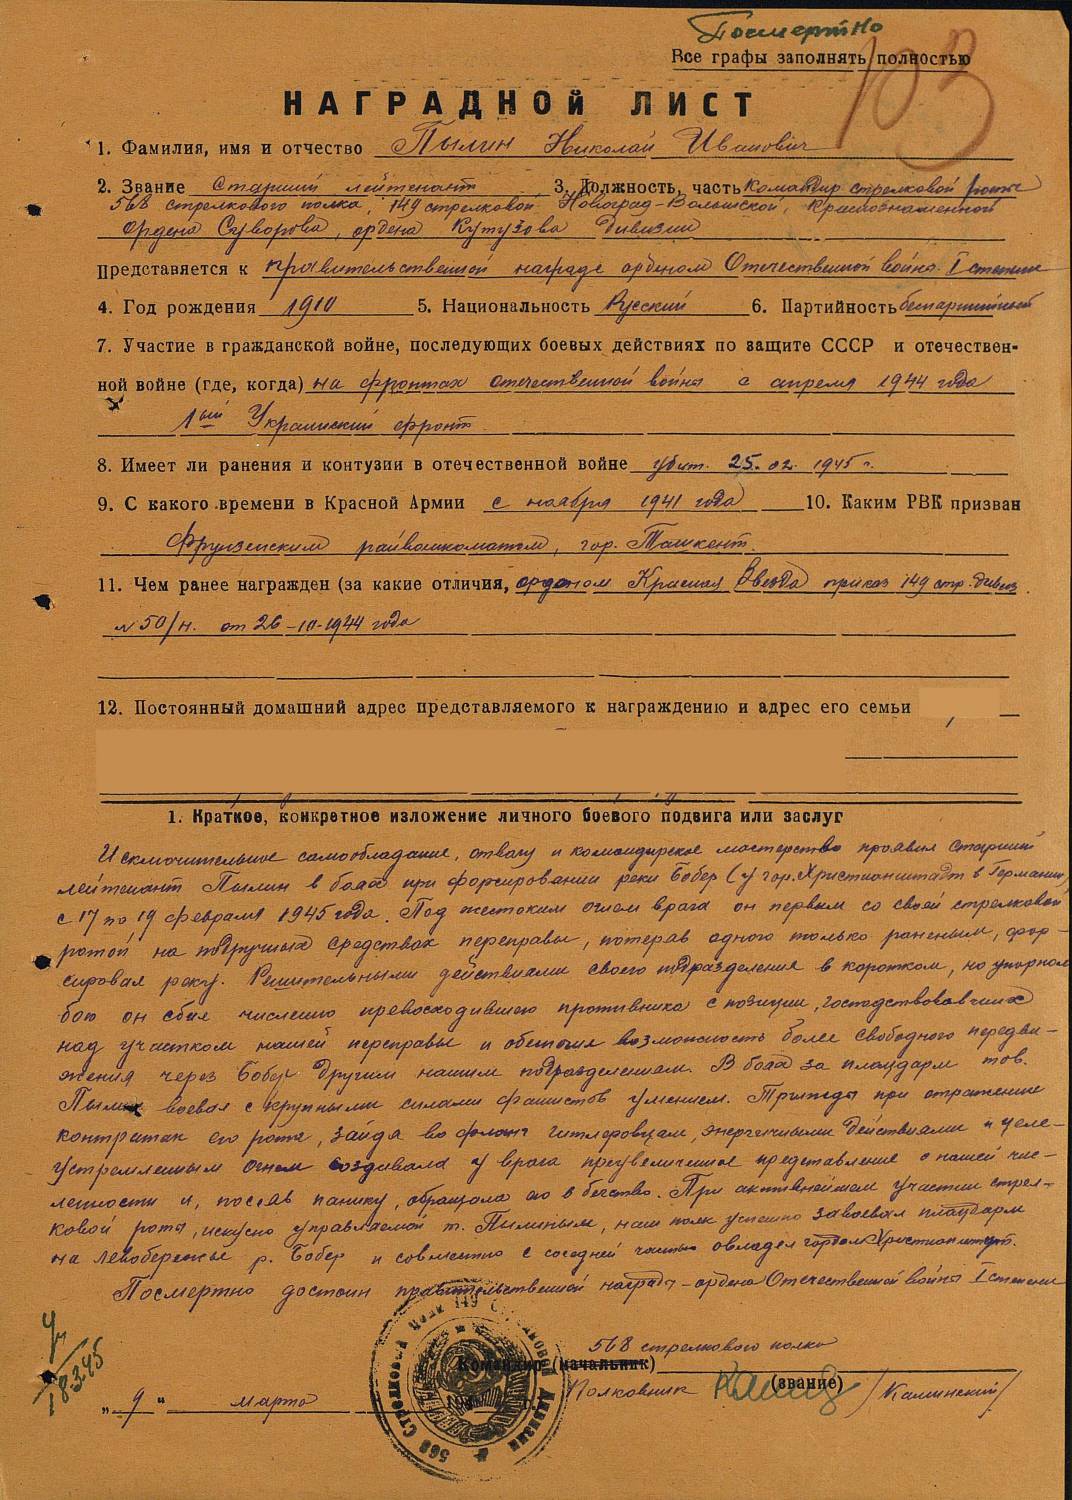 Посмертно
Все графы заполнять полностью
103
НАГРАДНОЙ ЛИСТ
1. Фамилия, имя и отчество Пылин Николай Иванович
2. Звание Старший лейтенант 3. Должность, часть Командир стрелковой роты
568 стрелкового полка, 149 стрелковой Новоград-Волынской, Краснознаменной
Ордена Суворова, ордена Кутузова дивизии
Представляется к правительственной награде орденом Отечественной война I степени
4. Год рождения 1910 5. Национальность Русский 6. Партийность беспартийный
7. Участие в гражданской войне, последующих боевых действиях по защите СССР и отечествен-
ной войне (где, когда) на фронтах отечественной война с апреля 1944 года
1ый Украинский фронт
8. Имеет ли ранения и контузии в отечественной войне убит. 25.02.1945 г.
9. С какого времени в Красной Армии с ноября 1941 года 10. Каким РВК призван
Фрунзенским райвоенкоматом, гор. Ташкент.
11. Чем ранее награжден (за какие отличия, орденом Красная Звезда приказ 149 стр. дивиз
№ 50/н. от 26-10-1944 года
12. Постоянный домашний адрес представляемого к награждению и адрес его семьи
1. Краткое, конкретное изложение личного боевого подвига или заслуг
Исключительное самообладание, отвагу и командирское мастерство проявил старший
лейтенант Пылин в боях при форсировании реки Бобер (у гор. Христианштадт в Германии)
с 17 по 19 февраля 1945 года. Под жестоким огнем врага он первым со своей стрелковой
ротой, на подручных средствах переправы, потеряв одного только раненым, фор-
сировал реку. Решительными действиями своего подразделения в коротком, но упорном
бою он сбил численно превосходившего противника с позиции, господствовавших
над участком нашей переправы и обеспечил возможность более свободного передви-
жения через Бобер другим нашим подразделением. В боях за плацдарм тов.
Пылин воевал с крупными силами фашистов умением. Трижды при отражении
контратак его рота, зайдя во фланг гитлеровцам, энергичными действиями и целе-
устремленным огнем создавала у врага преувеличенное представление о нашей чис-
ленности и, посеяв панику, обращала его в бегство. При активнейшем участии стрел-
ковой роты, искусно управляемой т. Пылиным, наш полк успешно завоевал плацдарм
на левобережье р. Бобер и совместно с соседней частью овладел городом Христианштадт.
Посмертно достоин правительственной награды - ордена Отечественной войны I степени
568 стрелкового полка
Командир (начальник)
Полковник (звание) /Калинский/
„ 9 “ марта
568 Стрелковый Полк 149 Стрелковой Дивизии
18.3.45